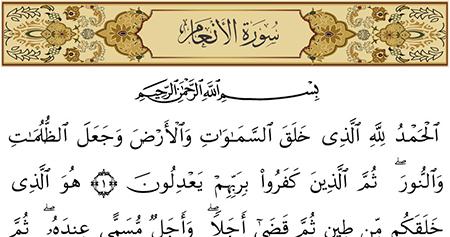 سُورَةُ الأَنْعَامِ
بِسْمِ اللَّهِ الرَّحْمَٰنِ الرَّحِيمِ
الْحَمْدُ لِلَّهِ الَّذِي خَلَقَ السَّمَاوَاتِ وَالْأَرْضَ وَجَعَلَ الظُّلُمَاتِ
وَالنُّورَ ۖ ثُمَّ الَّذِينَ كَفَرُوا بِرَبِّهِمْ يَعْدِلُونَ ﴿١﴾ هُوَ الَّذِي
خَلَقَكُم مِّن طِينٍ ثُمَّ قَضَىٰ أَجَلًا ۖ وَأَجَلٌ مُّسَمًّى عِندَهُ ۖ ثُمَّ